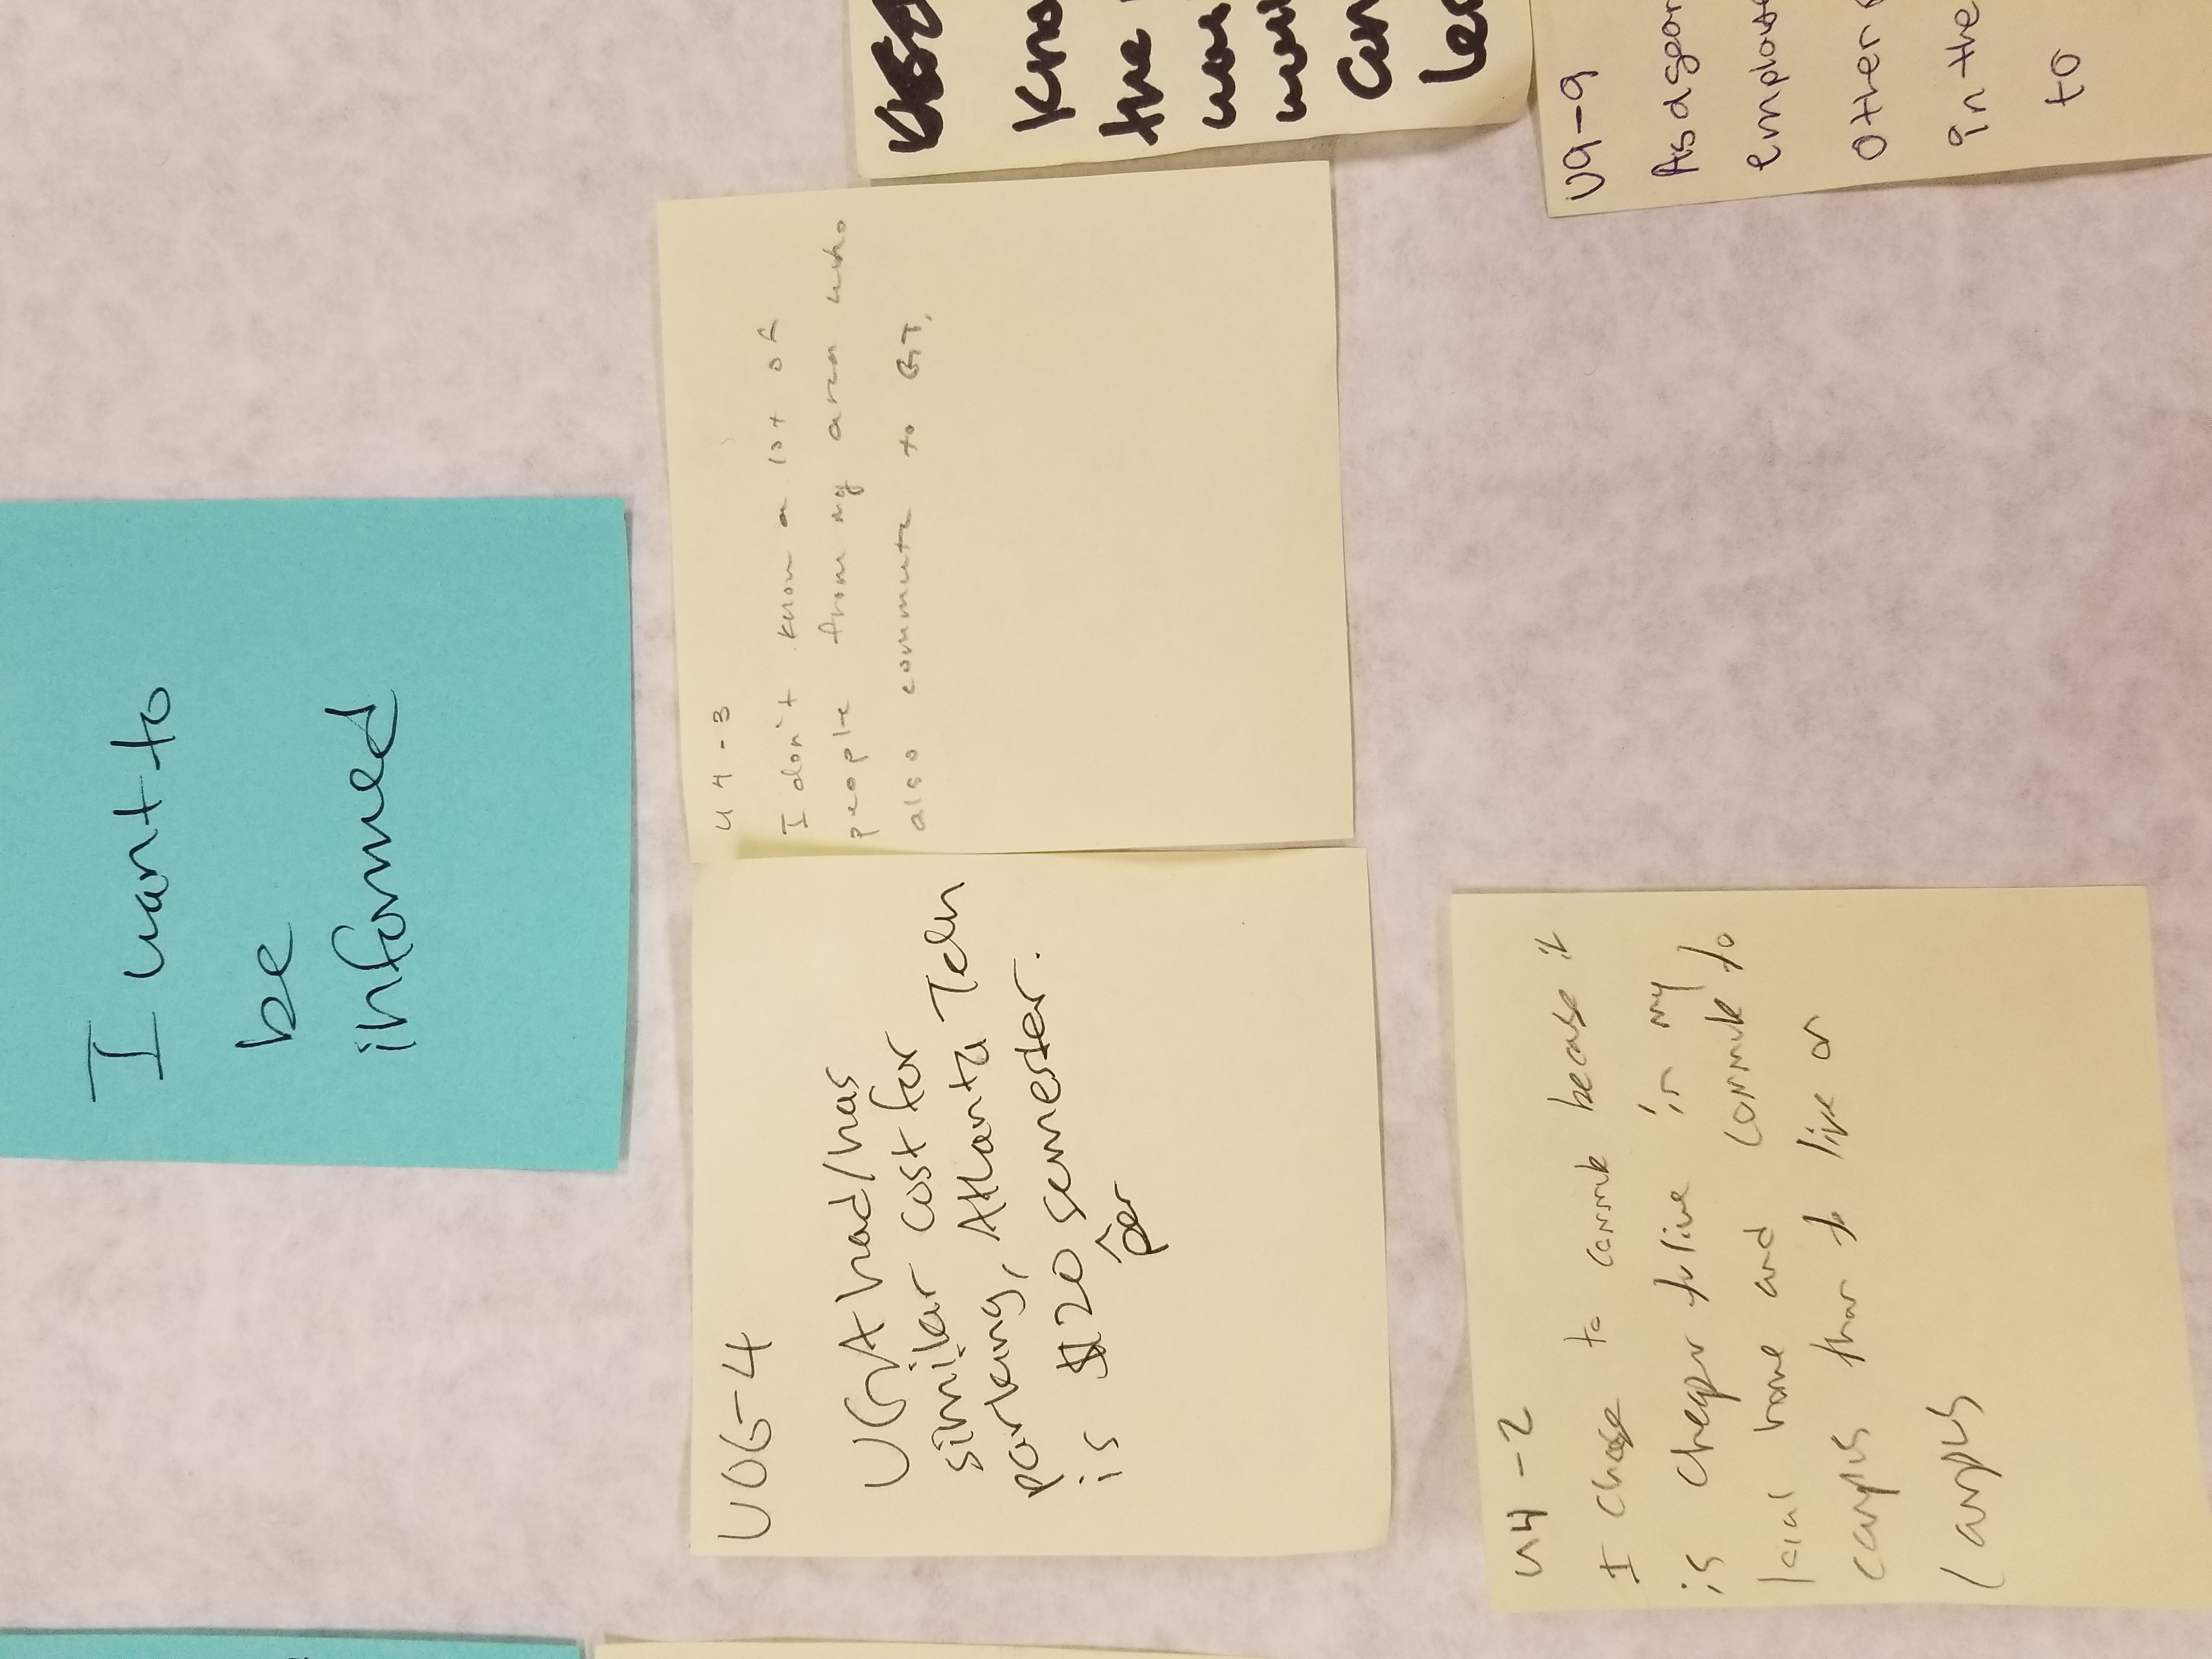 I want to
be
informed
U06-4
UGA had/has
similar cost for
parking, Atlanta Tech
is $20 semester.
per
U4-3
I don't know a lot of
people from my area who
also commute to GT.
U4-2
I chose to commute because I
is cheaper to live in my
local home and commute to
campus than to live on
campus
Kno
the
was
Con
U9-9
As a gear
employee
Other p
in the
to